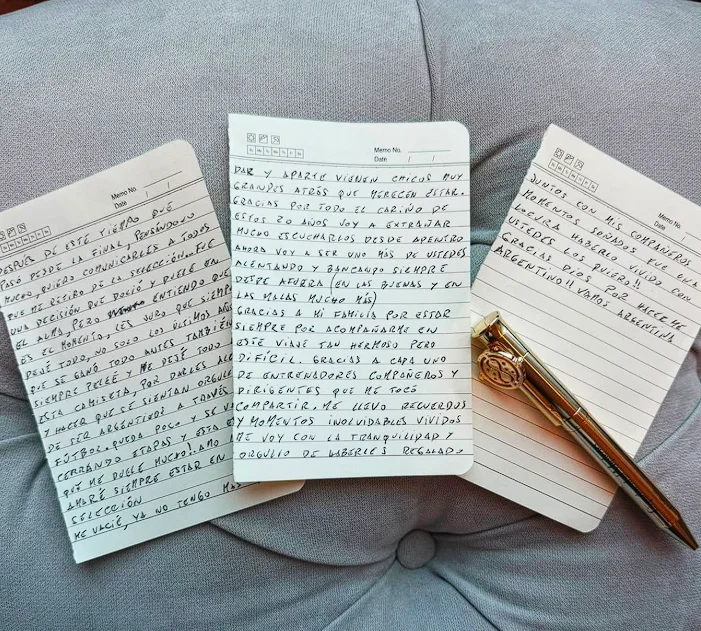 Memo No.
Date / /
DESPUÉS DE ESTE TIEMPO QUE
PASÓ DESDE LA FINAL, PENSÁNDOLO
MUCHO, QUIERO COMUNICARLES A TODOS
QUE ME RETIRO DE LA SELECCIÓN... FUE
UNA DECISIÓN QUE DOLIÓ Y DUELE EN
EL ALMA, PERO ENTIENDO QUE
ES EL MOMENTO, LES JURO QUE SIEMPRE
DEJÉ TODO, NO SOLO LOS ÚLTIMOS AÑOS
QUE SE GANÓ TODO ANTES TAMBIÉN
SIEMPRE PELEÉ Y ME DEJÉ TODO
ESTA CAMISETA, POR DARLES ALE
Y HACER QUE SE SIENTAN ORGULL
DE SER ARGENTINOS A TRAVÉS
FÚTBOL. QUEDA POCO Y SE VA
CERRANDO ETAPAS Y ESTA E
QUE ME DUELE MUCHO!! AMO
AMARÉ SIEMPRE ESTAR EN
SELECCIÓN
ME VACIÉ, YA NO TENGO MÁS
Memo No.
Date / /
DAR Y APARTE VIENEN CHICOS MUY
GRANDES ATRÁS QUE MERECEN ESTAR.
GRACIAS POR TODO EL CARIÑO DE
ESTOS 20 AÑOS VOY A EXTRAÑAR
MUCHO ESCUCHARLOS DESDE ADENTRO
AHORA VOY A SER UNO MÁS DE USTEDES
ALENTANDO Y BANCANDO SIEMPRE
DESDE AFUERA (EN LAS BUENAS Y EN
LAS MALAS MUCHO MÁS)
GRACIAS A MI FAMILIA POR ESTAR
SIEMPRE POR ACOMPAÑARME EN
ESTE VIAJE TAN HERMOSO PERO
DIFÍCIL. GRACIAS A CADA UNO
DE ENTRENADORES COMPAÑEROS Y
DIRIGENTES QUE ME TOCÓ
COMPARTIR. ME LLEVO RECUERDOS
Y MOMENTOS INOLVIDABLES VIVIDOS
ME VOY CON LA TRANQUILIDAD Y
ORGULLO DE HABERLES REGALADO
Memo No.
Date /
JUNTOS CON MIS COMPAÑEROS
MOMENTOS SOÑADOS FUE UNA
LOCURA HABERLO VIVIDO CON
USTEDES LOS QUIERO!!
GRACIAS DIOS POR HACERME
ARGENTINO!! VAMOS ARGENTINA